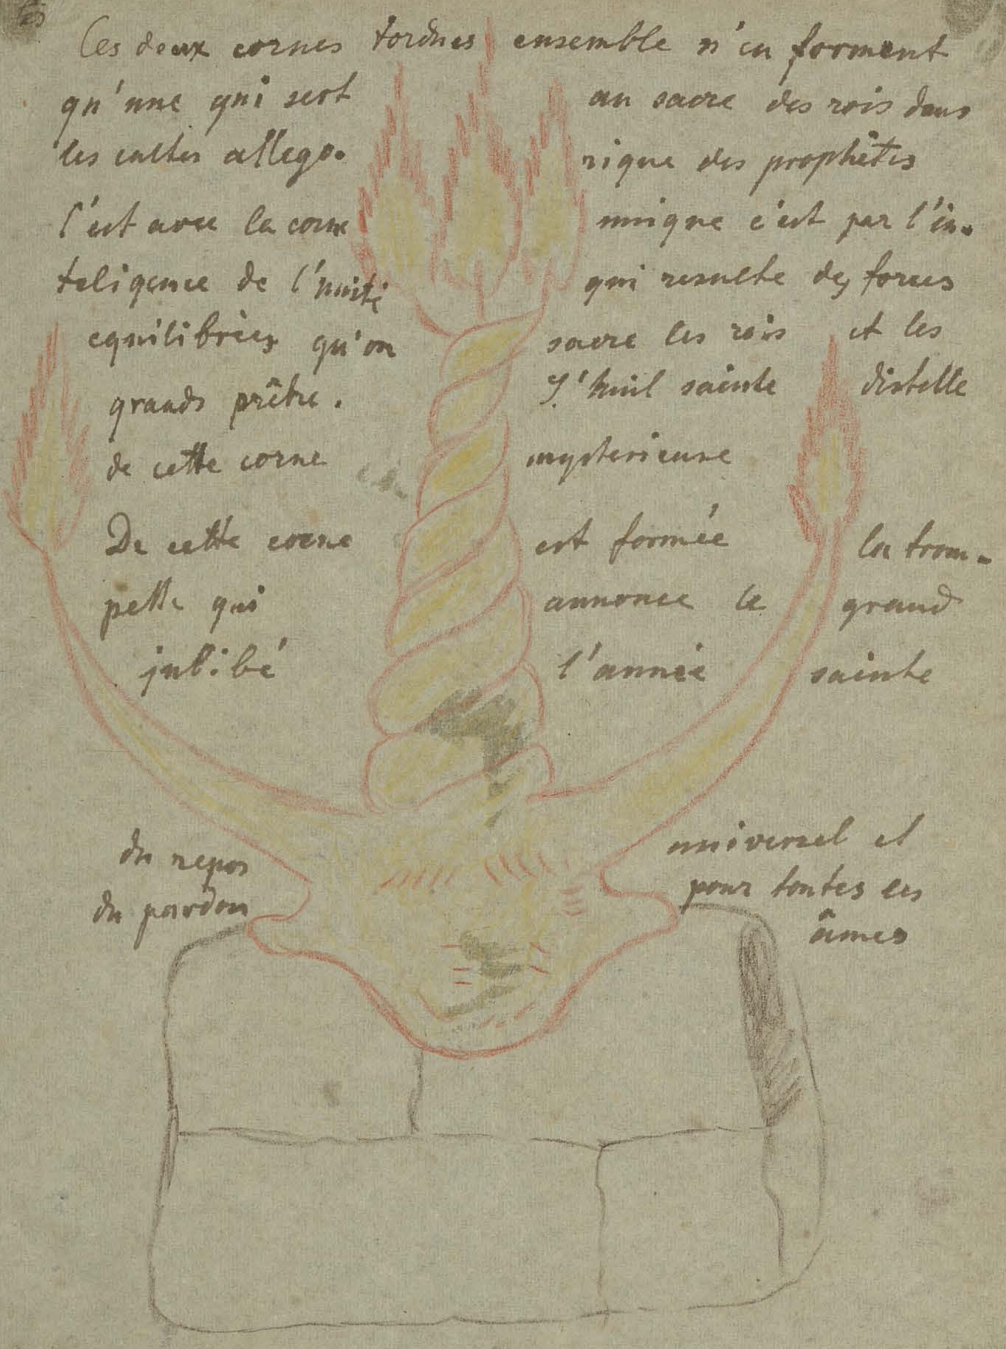 Ces deux cornes tordues ensemble n'en forment
qu'une qui sert au sacre des rois dans
les cultes allego. rique des prophêtes
C'est avec la corne unique c'est par l'in.
teligence de l'unité qui resulte des forces
equilibrées qu'on sacre les rois et les
grands prêtre. L'huil sainte distelle
de cette corne mysterieuse
De cette corne est formée la trom-
pette qui annonce le grand
jubibé l'année sainte
du repos universel et
du pardon pour toutes les
âmes